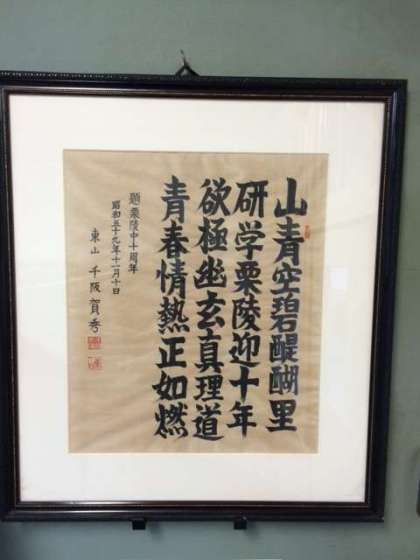 山青空碧醍醐里
研学栗陵迎十年
欲極幽玄真理道
青春情熱正如燃
題栗陵中十周年
昭和五十九年十一月十日
東山 千阪賀秀